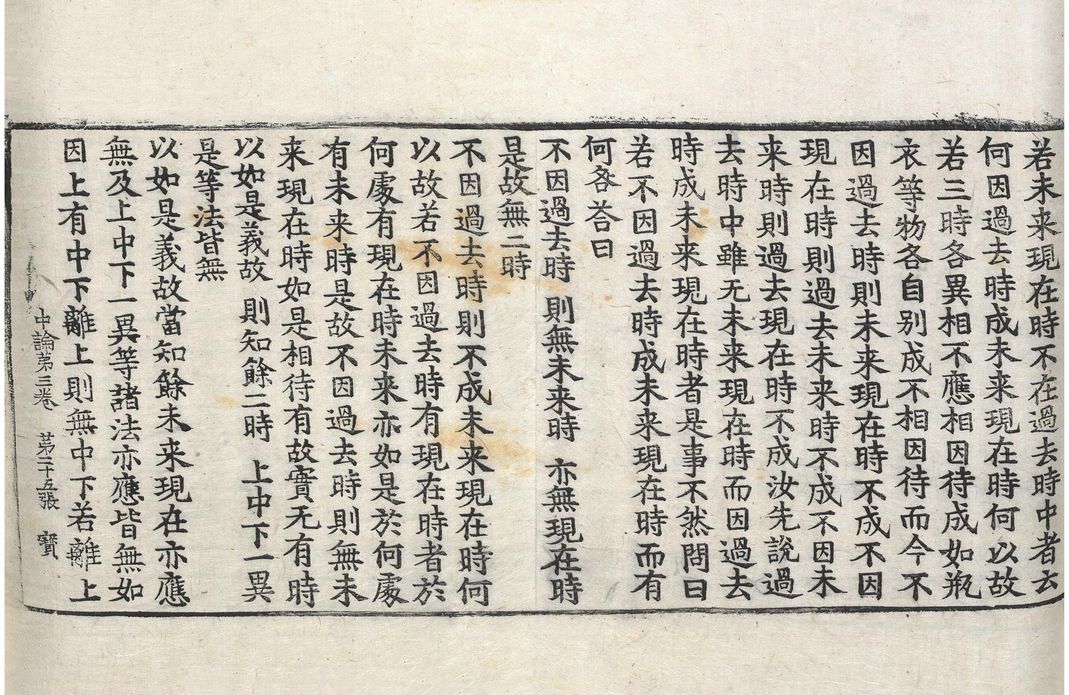 若未来現在時不在過去時中者云
何因過去時成未来現在時何以故
若三時各異相不應相因待成如瓶
衣等物各自别成不相因待而今不
因過去時則未来現在時不成不因
現在時則過去未来時不成不因未
来時則過去現在時不成汝先說過
去時中雖无未来現在時而因過去
時成未来現在時者是事不然問曰
若不因過去時成未来現在時而有
何咎荅曰
不因過去時 則無未来時 亦無現在時
是故無二時
不因過去時則不成未来現在時何
以故若不因過去時有現在時者於
何處有現在時未来亦如是於何處
有未来時是故不因過去時則無未
来現在時如是相待有故實无有時
以如是義故 則知餘二時 上中下一異
是等法皆無
以如是義故當知餘未来現在亦應
無及上中下一異等諸法亦應皆無如
因上有中下離上則無中下若離上
中論第三卷 第二十五張 寳